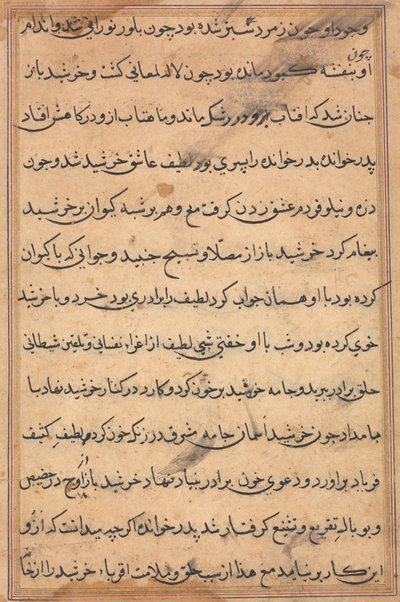 وجود او چون زمرد سبز شده بود چون بلور نورانی شد و اندام
چون
او بنفشه کبود مانده بود چون لاله لمعانی کشت و خرشید باز
چنان شد که افتاب برو در رشک ماند و ماهتاب از و در کاهش افتاد
پدر خوانده بدر خوانده را پسری بود لطیف عاشق خرشید شد و چون
ذره و نیلوفر دم عشق زدن کرفت مع و هر شبه کیوان بر خرشید
پیغام کرد خرشید باز از مصلا و تسبیح جنبید و جوابی که با کیوان
کرده بود با او همان جواب کرد لطیف را برادری بود خرد و با خرشید
خوی کرده بود و شب با او خفتی شبی لطیف از اغراء نفسانی و تلقین شیطانی
حلق برادر ببرید و جامه خرشید پر خون کرد و کارد در کنار خرشید نهاد با
مداد چون خرشید اسمان جامه مشرق در رنک خون کرد لطیف کثیف
فریاد براورد و دعوی خون برادر بنیاد نهاد خرشید باز از اوج در حضیض
و بوباله تقریع و تشنیع کرفتار شد پدر خوانده اکرچه میدانست که از و
این کار بر نیامد مع هذا از سبب خلق و ملامت اقرباء خرشید را از خا